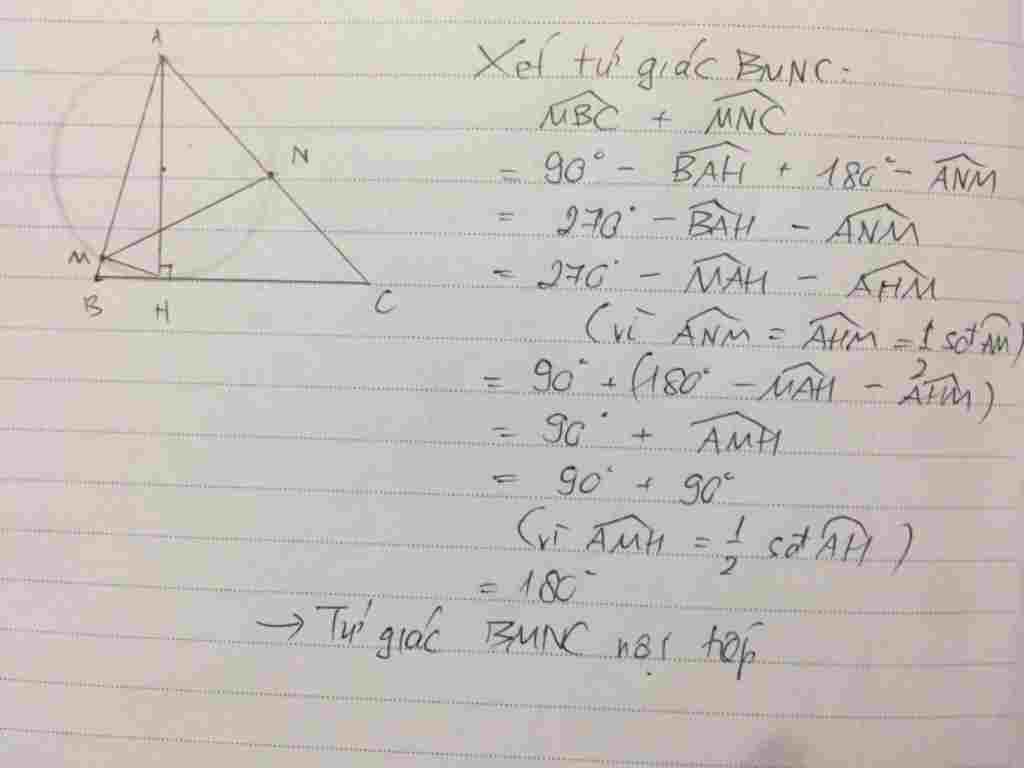 A
N
M
B
H
C
Xét tứ giác BMNC:
$\widehat{MBC} + \widehat{MNC}$
$= 90° - \widehat{BAH} + 180° - \widehat{ANM}$
$= 270° - \widehat{BAH} - \widehat{ANM}$
$= 270° - \widehat{MAH} - \widehat{AHM}$
(vì $\widehat{ANM} = \widehat{AHM} = \frac{1}{2}$ sđ $\overset{\frown}{AM}$)
$= 90° + (180° - \widehat{MAH} - \widehat{AHM})$
$= 90° + \widehat{AMH}$
$= 90° + 90°$
(vì $\widehat{AMH} = \frac{1}{2}$ sđ $\overset{\frown}{AH}$)
$= 180°$
→ Tứ giác BMNC nội tiếp